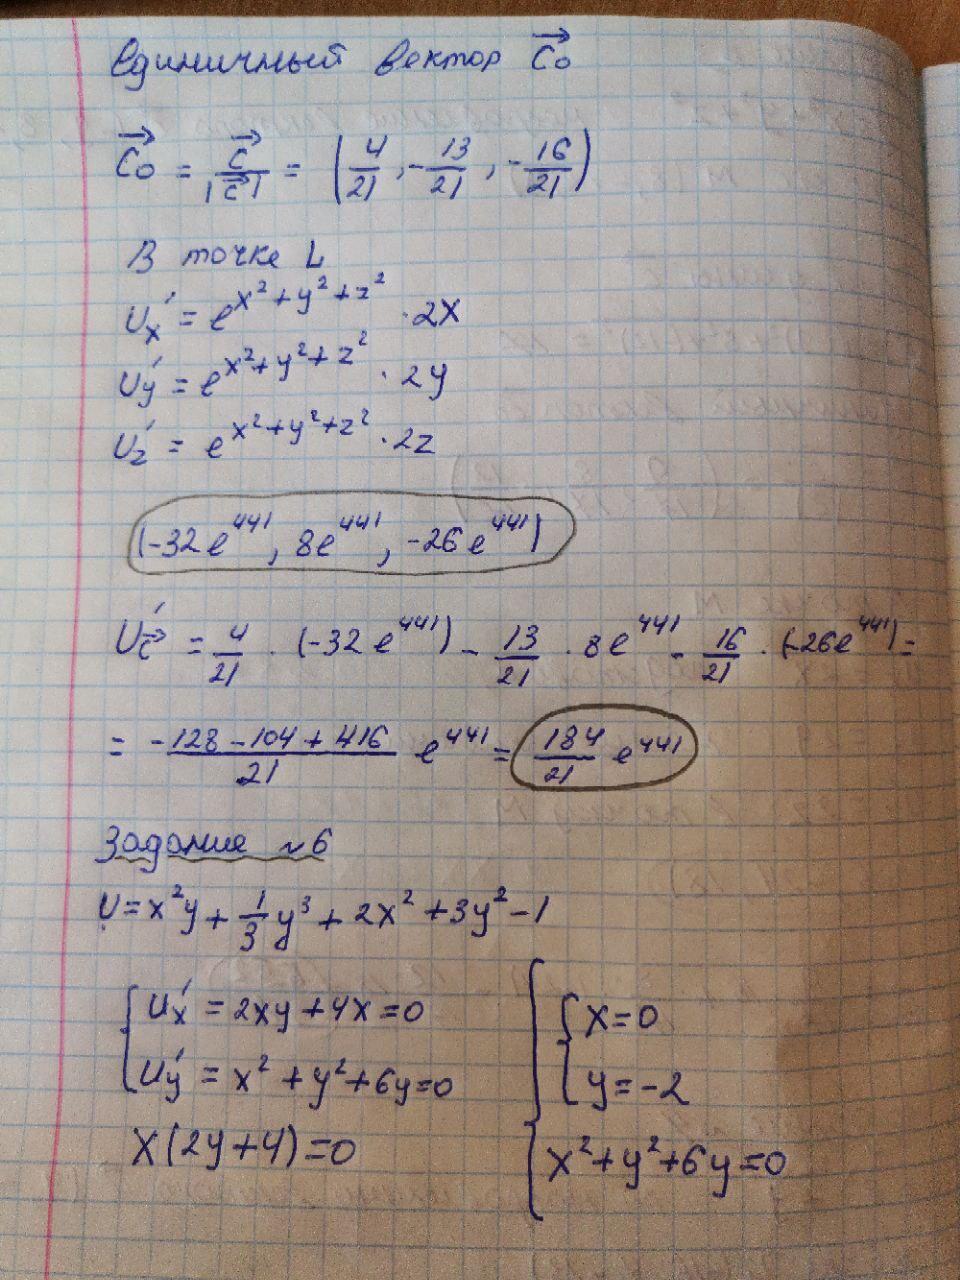 Единичный вектор C₀⃗
C₀⃗ = C⃗/|C⃗| = (4/21, -13/21, -16/21)
В точке L
Ux' = e^(x²+y²+z²) · 2x
Uy' = e^(x²+y²+z²) · 2y
Uz' = e^(x²+y²+z²) · 2z
(-32e^441, 8e^441, -26e^441)
Uc⃗' = 4/21 · (-32e^441) - 13/21 · 8e^441 - 16/21 · (-26e^441) =
= (-128-104+416)/21 e^441 = 184/21 e^441
Задание №6
U = x²y + 1/3 y³ + 2x² + 3y² - 1
{ Ux' = 2xy + 4x = 0
{ Uy' = x² + y² + 6y = 0
x(2y+4) = 0
{ { x = 0
{ { y = -2
{ x² + y² + 6y = 0